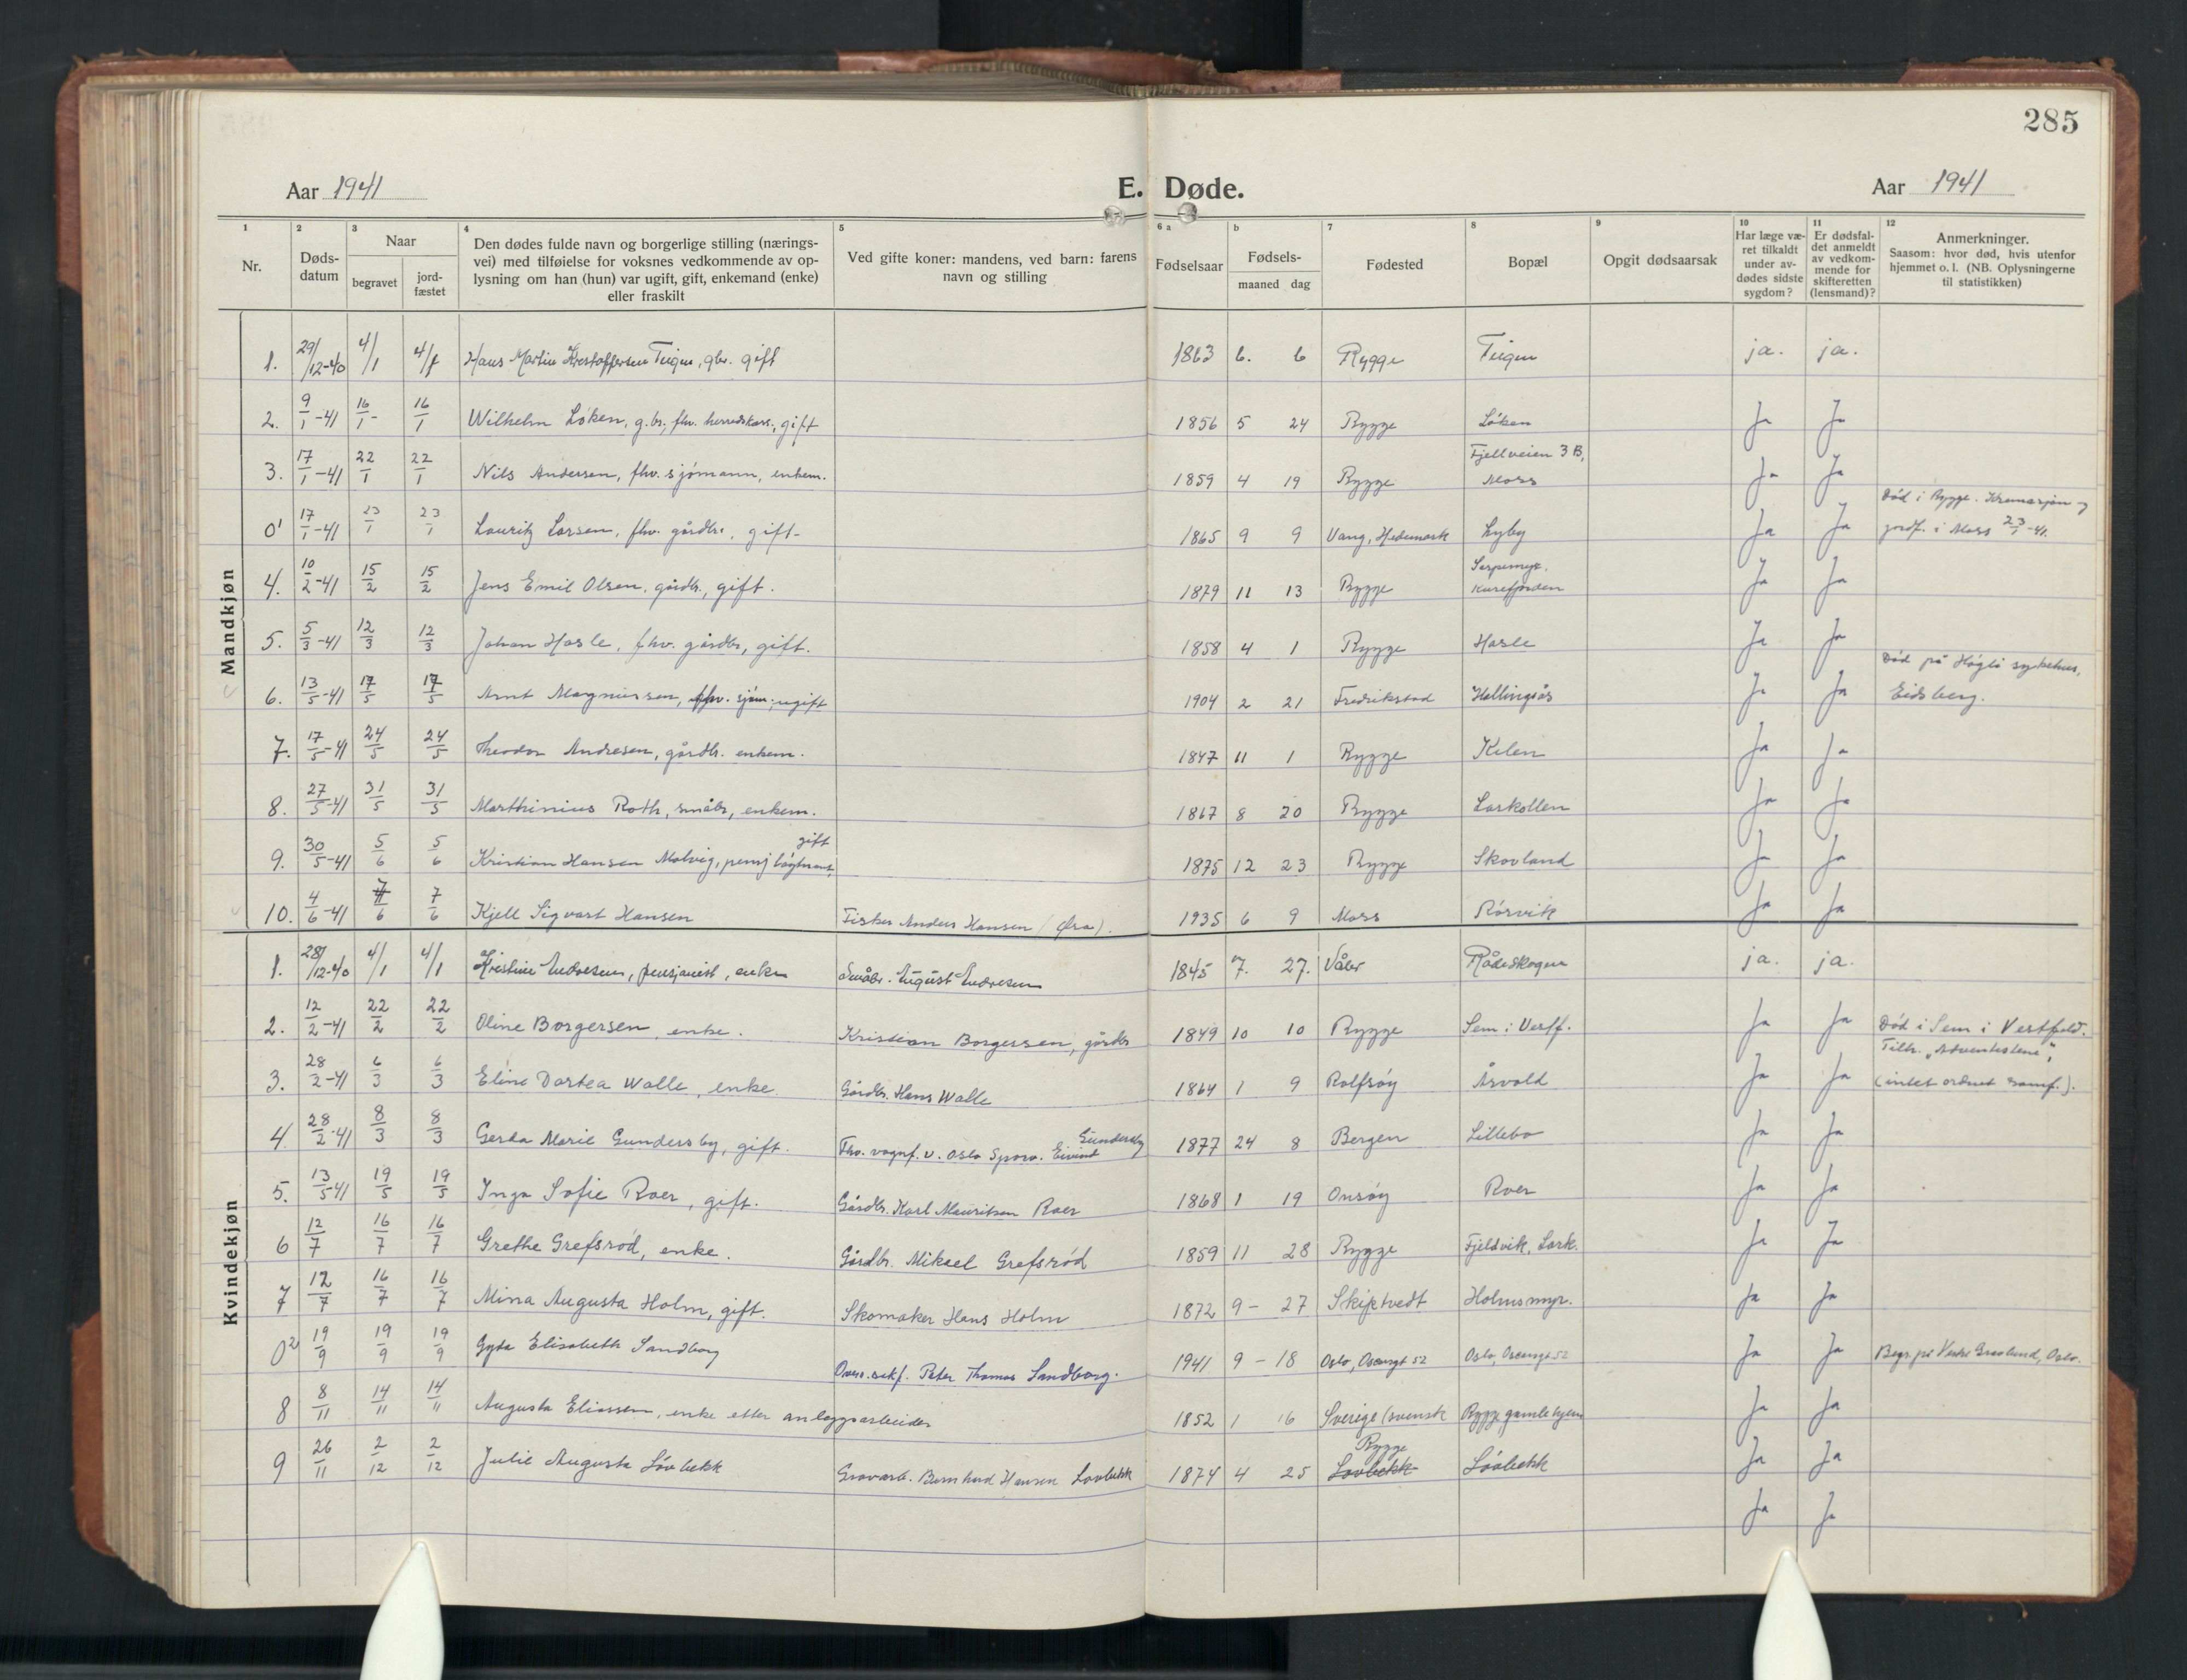 285
Aar 1941 E. Døde. Aar 1941
1 2 3 4 5 6 a b 7 8 9 10 11 12
Nr.
Døds-
datum
Naar
begravet
jord-
fæstet
Den dødes fulde navn og borgerlige stilling (nærings-
vei) med tilføielse for voksnes vedkommende av op-
lysning om han (hun) var ugift, gift, enkemand (enke)
eller fraskilt
Ved gifte koner: mandens, ved barn: farens
navn og stilling
Fødselsaar
Fødsels-
maaned dag
Fødested
Bopæl
Opgit dødsaarsak
Har læge væ-
ret tilkaldt
under av-
dødes sidste
sygdom?
Er dødsfal-
det anmeldt
av vedkom-
mende for
skifteretten
(lensmand)?
Anmerkninger.
Saasom: hvor død, hvis utenfor
hjemmet o. l. (NB. Oplysningerne
til statistikken)
Mandkjøn
1. 29/12-40 4/1 4/1 Hans Martin Kristoffersen Tiigen, gbr. gift 1863 6. 6 Rygge Tiigen ja. ja.
2. 9/1-41 16/1- 16/1 Wilhelm Løken, g.br., fhv. herredskass., gift 1856 5 24 Rygge Løken Ja Ja
3. 17/1-41 22/1 22/1 Nils Andersen, fhv. sjømann, enkem. 1859 4 19 Rygge Fjellveien 3 B, Moss Ja Ja
0¹ 17/1-41 23/1 23/1 Lauritz Larsen, fhv. gårdbr., gift- 1865 9 9 Vang, Hedemark Lyby Ja Ja Død i Rygge. Kremasjon og
jordf. i Moss 23/1-41.
4. 10/2-41 15/2 15/2 Jens Emil Olsen, gårdbr., gift. 1879 11 13 Rygge Kurefjorden Ja Ja
5. 5/3-41 12/3 12/3 Johan Hasle, fhv. gårdbr, gift. 1858 4 1 Rygge Hasle Ja Ja
6. 13/5-41 17/5 17/5 Arnt Magnussen, fhv. sjøm., ugift 1904 2 21 Fredrikstad Hellingsås Ja Ja Død på Högli sykehus,
Eidsberg.
7. 17/5-41 24/5 24/5 Theodor Andresen, gårdb. enkem. 1847 11 1 Rygge Kilen Ja Ja
8. 27/5-41 31/5 31/5 Marthinius Roth, småbr, enkem. 1867 8 20 Rygge Larkollen Ja Ja
9. 30/5-41 5/6 5/6 Kristian Hansen Molvig, pensj løytnant, gift 1875 12 23 Rygge Skovland Ja Ja
10. 4/6-41 7/6 7/6 Kjell Sigvart Hansen Fisker Anders Hansen (Øra). 1935 6 9 Moss Rørvik Ja Ja
Kvindekjøn
1. 28/12-40 4/1 4/1 Kristine Andresen, pensjonist, enke Småbr. August Andresen 1845 7. 27. Våler Rådeskogen ja. ja.
2. 12/2-41 22/2 22/2 Oline Borgersen, enke. Kristian Borgersen, gårdbr 1849 10 10 Rygge Sem i Vestf. Ja Ja Død i Sem i Vestfold.
3. 28/2-41 6/3 6/3 Eline Dortea Walle, enke. Gårdbr. Hans Walle 1864 1 9 Rolfsøy Årvold Ja Ja Tilh. "Adventistene",
(intet ordnet samf.).
4. 28/2-41 8/3 8/3 Gerda Marie Gundersby, gift. Fhv. vognf. v. Oslo Sporv. Eivind Gundersby 1877 24 8 Bergen Lillebo Ja Ja
5. 13/5-41 19/5 19/5 Inga Sofie Roer, gift. Gårdbr. Karl Mauritsen Roer 1868 1 19 Onsøy Roer Ja Ja
6 12/7 16/7 16/7 Grethe Grefsrød, enke. Gårdbr. Mikael Grefsrød 1859 11 28 Rygge Fjeldvik, Lark. Ja Ja
7 12/7 16/7 16/7 Mina Augusta Holm, gift. Skomaker Hans Holm 1872 9- 27 Skiptvedt Holmsmyr. Ja Ja
0² 19/9 19/9 19/9 Gyda Elisabeth Sandborg Overs.sekf. Peter Thomas Sandborg. 1941 9-18 Oslo, Oscarsgt 52 Oslo, Oscarsgt 52 Ja Ja Begr. på Vestre Gravlund, Oslo.
8 8/11 14/11 14/11 Augusta Eliassen, enke etter anleggsarbeider 1852 1 16 Sverige (svensk Rygge gamlehjem Ja Ja
9 26/11 2/12 2/12 Julie Augusta Løvbekk Gravarb. Bernhard Hansen Løvbekk 1874 4 25 Rygge Løvbekk Løvbekk Ja Ja
Ja Ja